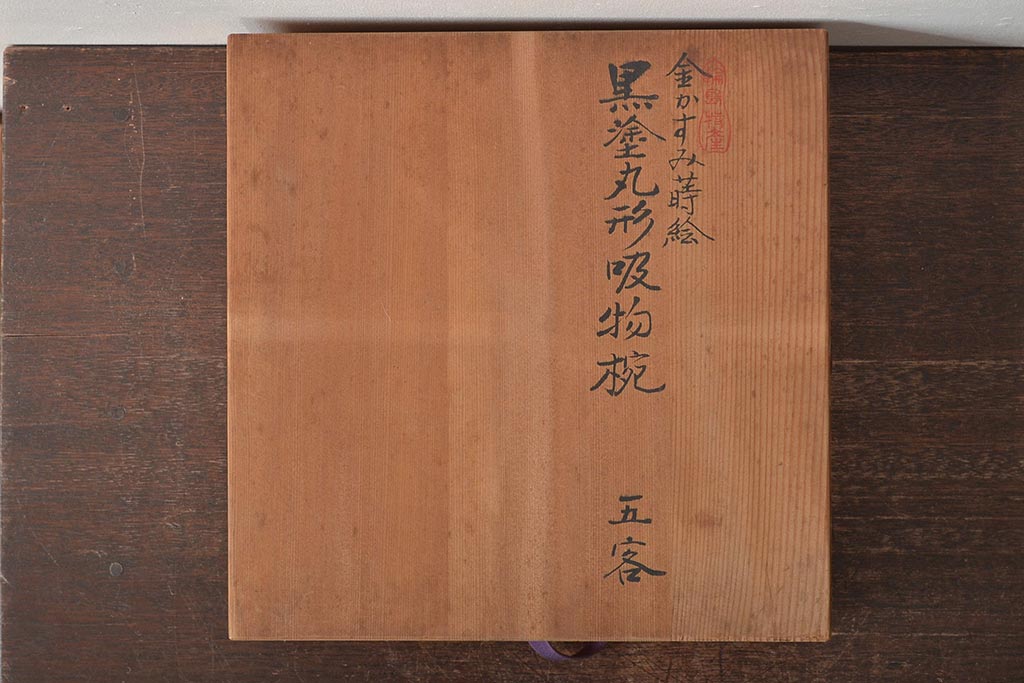 金かすみ蒔絵
黒塗丸形吸物椀
五客